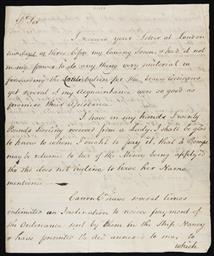 Dr Sir
I received your Letter at London
or three days my coming down, & had it not
in my power to do any thing very material in
forwarding the Contribution for the
yet several of my Acquaintance were so good as
promise their Assistance.
I have in my hands Twenty
Pounds Sterling received from a Lady; I shall be glad
to know to whom I ought to pay it, that a
may be returned to her of the Money being apply'd
tho she does not incline to have her Name
mentioned
have several times
an Inclination to receive payment of
the Ordnance sent by them in the Ship
& have presented the to may to
which